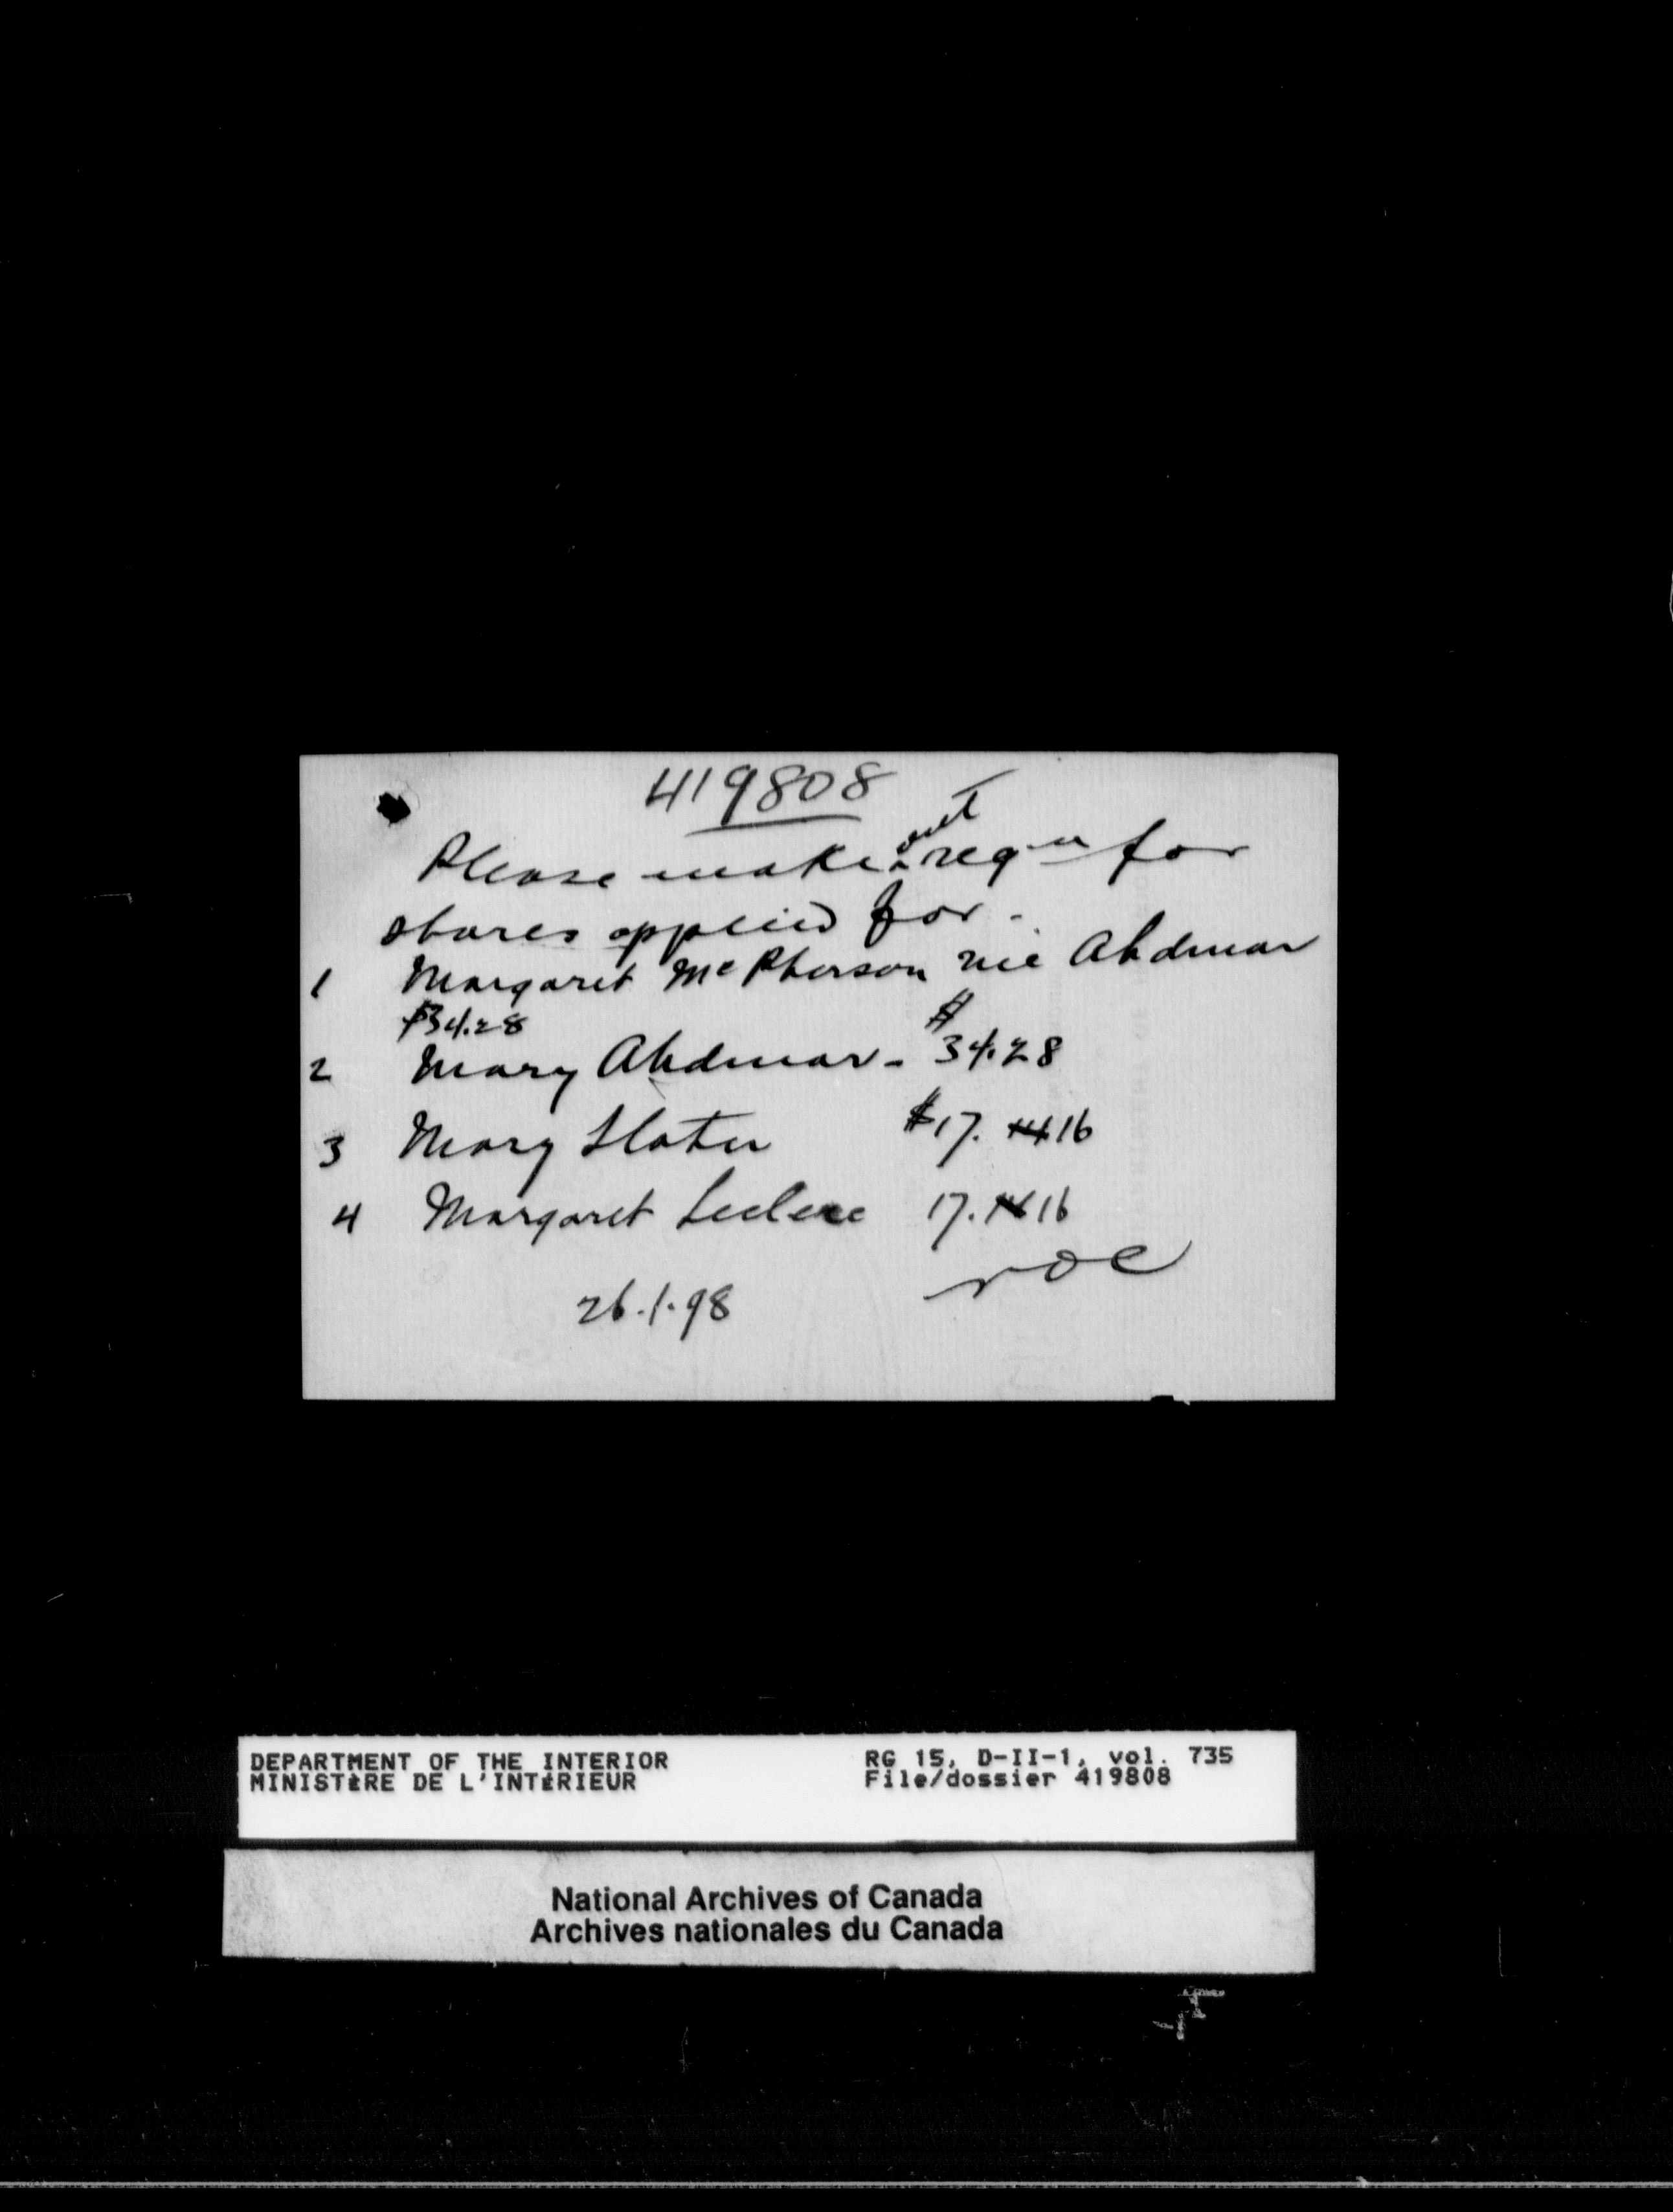 419808
Please make out reqn for
shares applied for.
1 Margaret McPherson née Ahdmar
$34.28
2 Mary Ahdmar - $34.28
3 Mary Slater $17. 14 16
4 Margaret Leclerc 17. 16
roe
26.1.98
DEPARTMENT OF THE INTERIOR RG 15, D-II-1, vol. 735
MINISTÈRE DE L'INTÉRIEUR File/dossier 419808
National Archives of Canada
Archives nationales du Canada